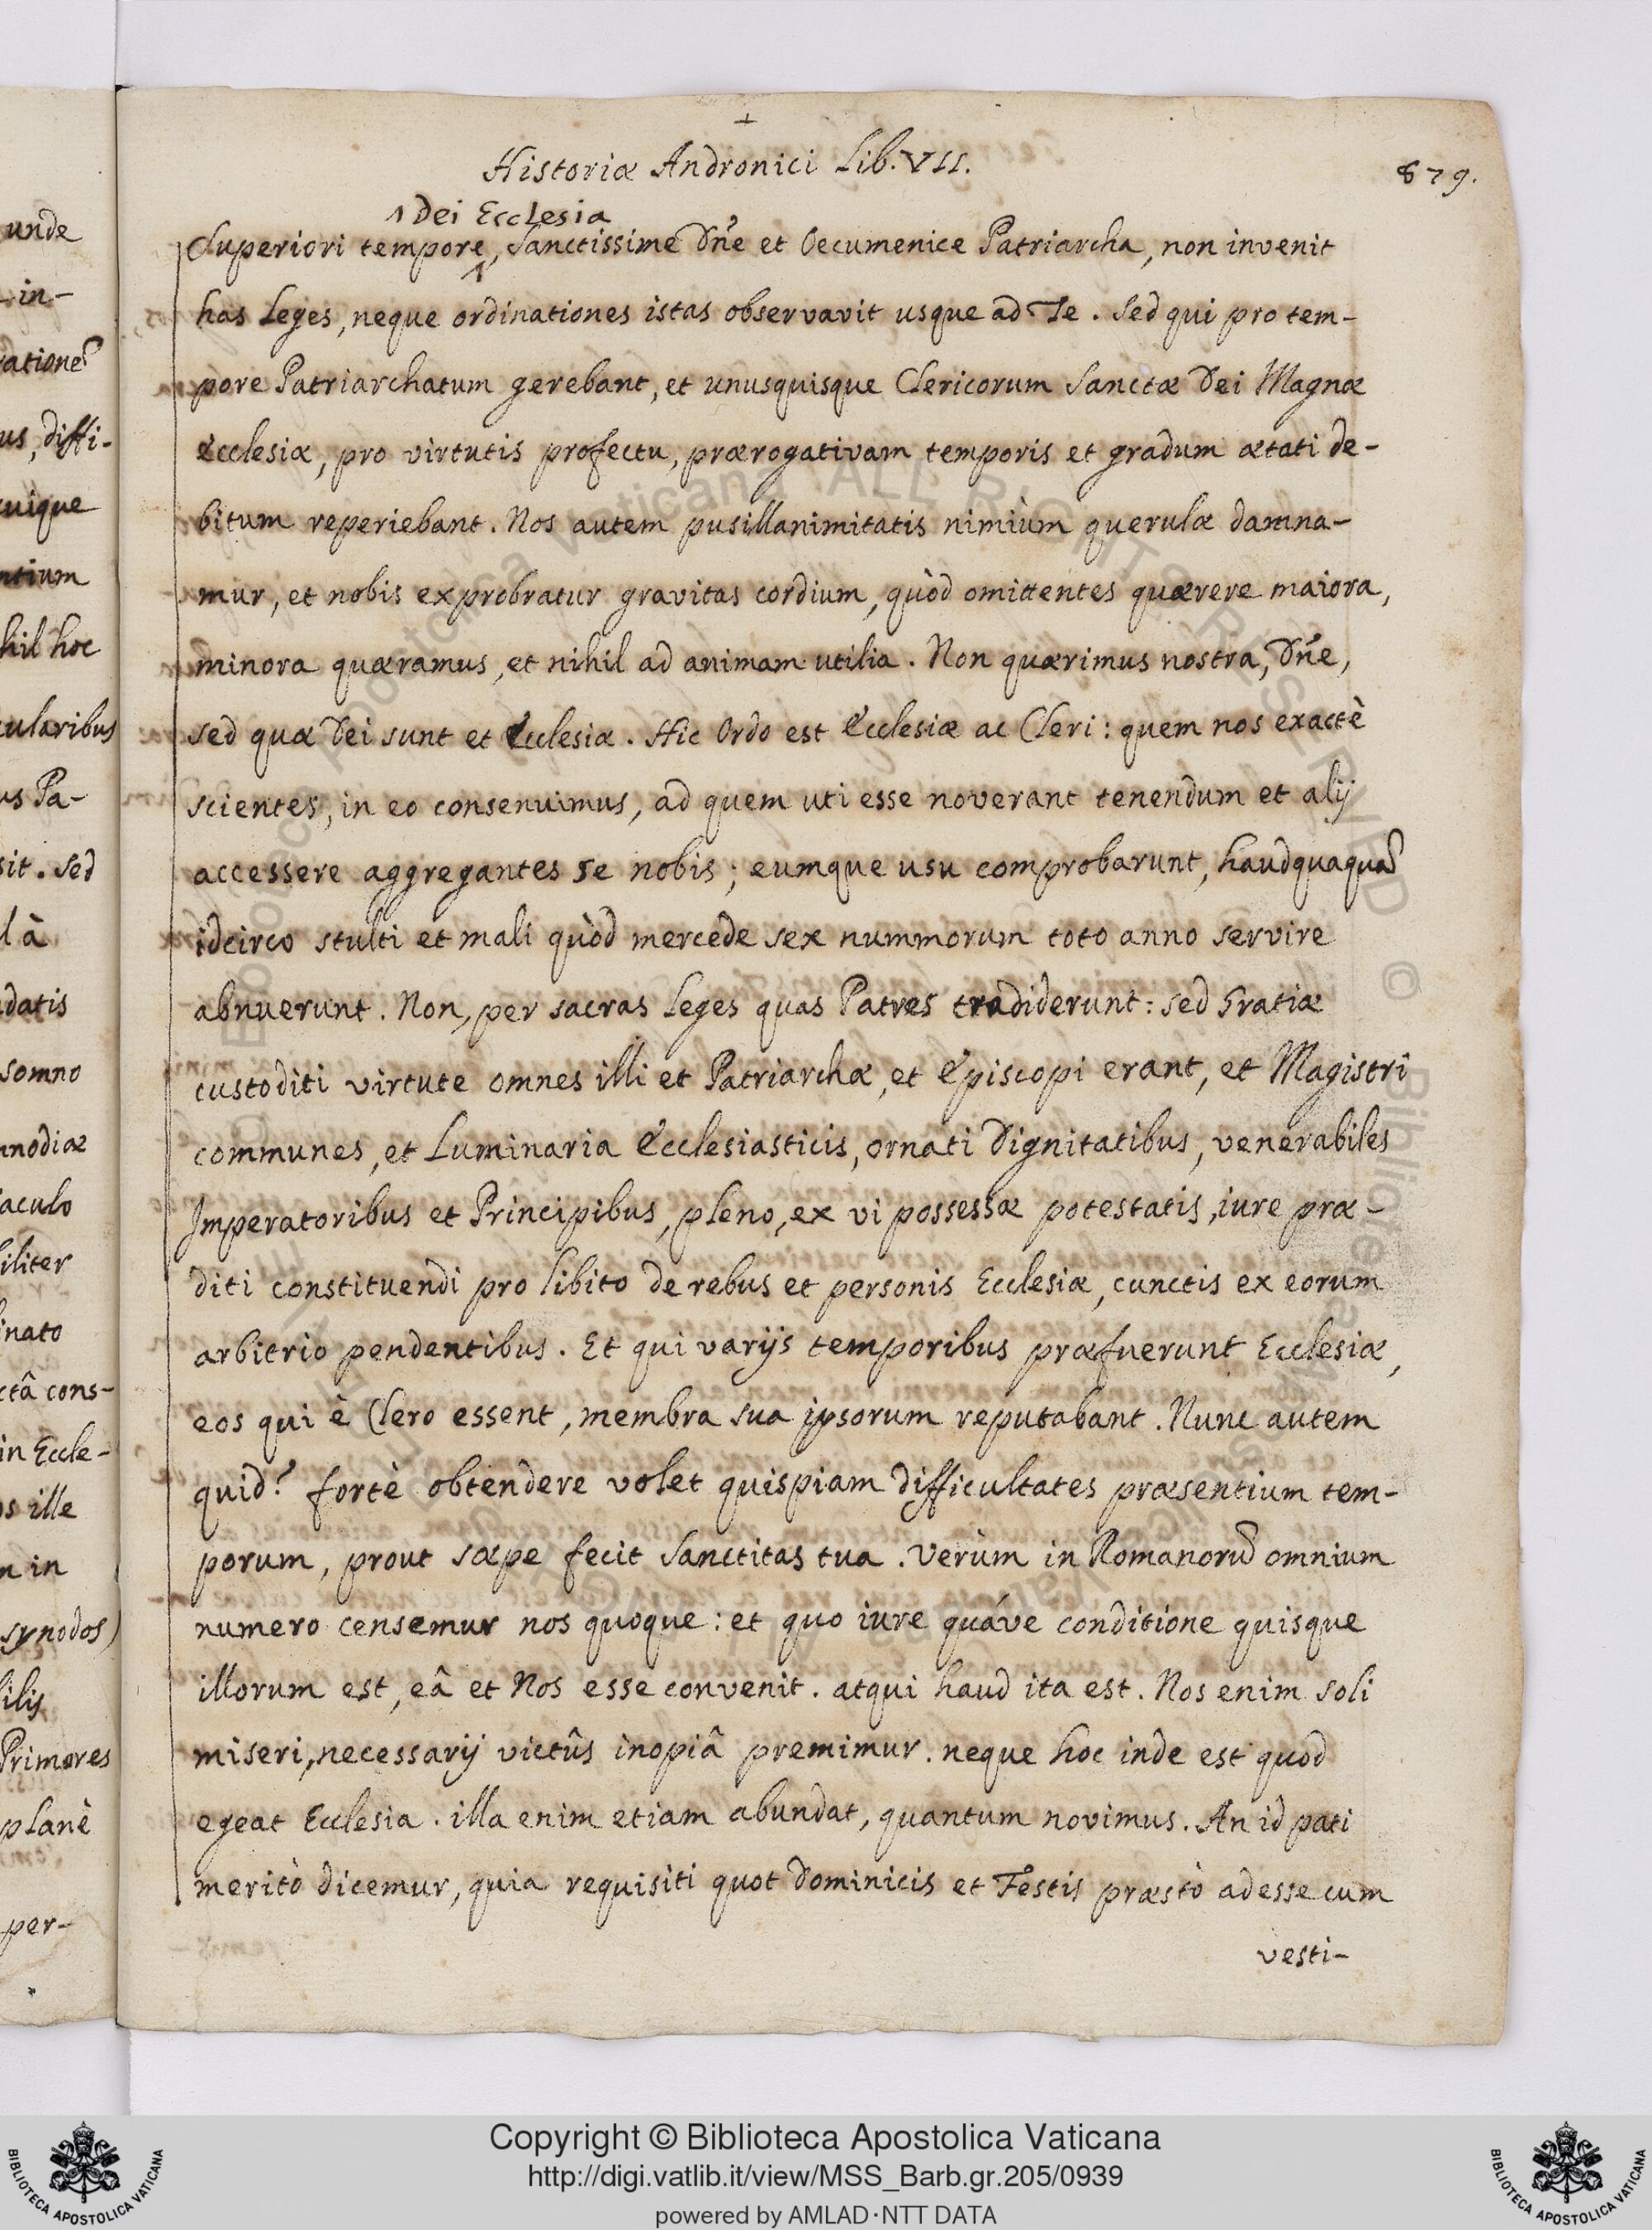 +
Historiæ Andronici Lib. VII.
879.
unde
in-
rationẽ
us, diffi-
cuique
ntium
hil hoc
cularibus
us Pa-
sit. Sed
l à
datis
somno
mnodiæ
iaculo
iliter
inato
ctâ cons-
in Eccle-
os ille
n in
synodos)
ilis
Primores
planè
per-
^ Dei Ecclesia
Superiori tempore^, Sanctissime Dñe et Oecumenice Patriarcha, non invenit
has Leges, neque ordinationes istas observavit usque ad Te. Sed qui pro tem-
pore Patriarchatum gerebant, et unusquisque Clericorum Sanctæ Dei Magnæ
Ecclesiæ, pro virtutis profectu, prærogativam temporis et gradum ætati de-
bitum reperiebant. Nos autem pusillanimitatis nimiùm querulæ damna-
mur, et nobis exprobratur gravitas cordium, quòd omittentes quærere maiora,
minora quæramus, et nihil ad animam utilia. Non quærimus nostra, Dñe,
sed quæ Dei sunt et Ecclesiæ. Hic Ordo est Ecclesiæ ac Cleri: quem nos exactè
scientes, in eo consenuimus, ad quem uti esse noverant tenendum et alij
accessere aggregantes se nobis; eumque usu comprobarunt, haudquaquã
idcirco stulti et mali quòd mercede sex nummorum toto anno servire
abnuerunt. Non, per sacras Leges quas Patres tradiderunt: sed Gratiæ
custoditi virtute omnes illi et Patriarchæ, et Episcopi erant, et Magistri
communes, et Luminaria Ecclesiasticis, ornati Dignitatibus, venerabiles
Imperatoribus et Principibus, pleno, ex vi possessæ potestatis, iure præ-
diti constituendi pro libito de rebus et personis Ecclesiæ, cunctis ex eorum
arbitrio pendentibus. Et qui varijs temporibus præfuerunt Ecclesiæ,
eos qui è Clero essent, membra sua ipsorum reputabant. Nunc autem
quid? fortè obtendere volet quispiam difficultates præsentium tem-
porum, prout sæpe fecit Sanctitas tua. Verùm in Romanorũ omnium
numero censemur nos quoque: et quo iure quáve conditione quisque
illorum est, eâ et Nos esse convenit. atqui haud ita est. Nos enim soli
miseri, necessarij victûs inopiâ premimur. neque hoc inde est quod
egeat Ecclesia. illa enim etiam abundat, quantum novimus. An id pati
meritò dicemur, quia requisiti quot Dominicis et Festis præstò adesse cum
vesti-
Copyright © Biblioteca Apostolica Vaticana
http://digi.vatlib.it/view/MSS_Barb.gr.205/0939
powered by AMLAD·NTT DATA
BIBLIOTECA APOSTOLICA VATICANA
BIBLIOTECA APOSTOLICA VATICANA